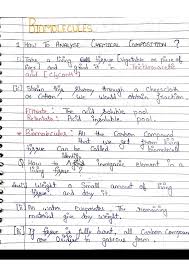 BIOMOLECULES
HOW TO ANALYSE CHEMICAL COMPOSITION ?
Take a living tissue (vegetable or piece of
and grind it in Trichloroacetic
acid
Strain the slurry through a cheesecloth
or cotton, we would obtain fraction
Filtrate : The acid soluble pool
Retentate : Acid insoluble pool.
Biomolecules : All the Carbon Compound
that we get from living
tissue can be Called Biomolecules
Q. How to identify Inorganic element in a
living tissue ?
Ans) Weight a small amount of living
tissue and dry it.
All water evaporates the remaining
material give dry weight.
If tissue is fully burnt, all Carbon Compounds
are Oxidised to gaseous form.